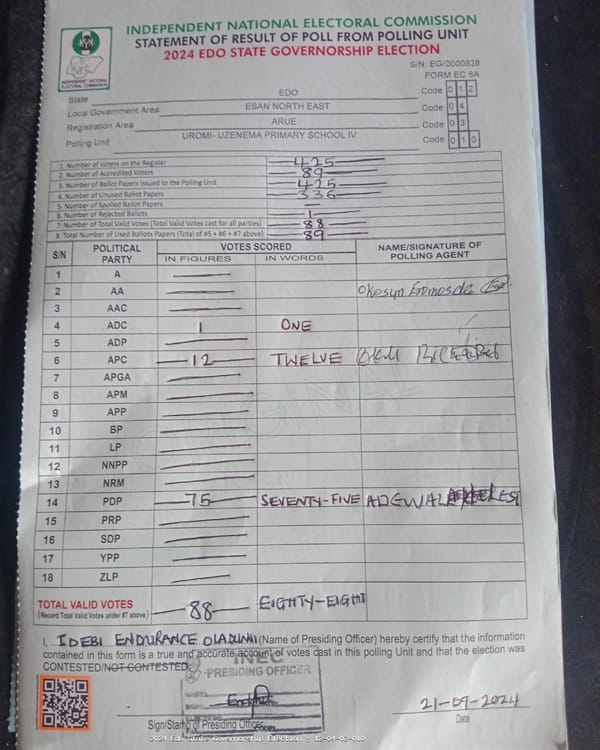 INDEPENDENT NATIONAL ELECTORAL COMMISSION
STATEMENT OF RESULT OF POLL FROM POLLING UNIT
2024 EDO STATE GOVERNORSHIP ELECTION
S/N: EG/0000828
FORM EC 8A
INDEPENDENT NATIONAL ELECTORAL COMMISSION
State EDO Code 0 1 2
Local Government Area ESAN NORTH EAST Code 0 4
Registration Area ARUE Code 0 3
Polling Unit UROMI- UZENEMA PRIMARY SCHOOL IV Code 0 1 0
1. Number of Voters on the Register 425
2. Number of Accredited Voters 89
3. Number of Ballot Papers Issued to the Polling Unit 425
4. Number of Unused Ballot Papers 336
5. Number of Spoiled Ballot Papers —
6. Number of Rejected Ballots 1
7. Number of Total Valid Votes (Total Valid Votes cast for all parties) 88
8. Total Number of Used Ballots Papers (Total of #5 + #6 + #7 above) 89
S/N POLITICAL PARTY VOTES SCORED NAME/SIGNATURE OF POLLING AGENT
IN FIGURES IN WORDS
1 A —
2 AA —
3 AAC —
4 ADC 1 ONE
5 ADP —
6 APC 12 TWELVE
7 APGA —
8 APM —
9 APP —
10 BP —
11 LP —
12 NNPP —
13 NRM —
14 PDP 75 SEVENTY-FIVE
15 PRP —
16 SDP —
17 YPP —
18 ZLP —
TOTAL VALID VOTES 88 EIGHTY-EIGHT
(Record Total Valid Votes under #7 above)
I, IDEBI ENDURANCE (Name of Presiding Officer) hereby certify that the information
contained in this form is a true and accurate account of votes cast in this polling Unit and that the election was
CONTESTED/NOT CONTESTED
INEC
PRESIDING OFFICER
21-09-2024
Sign/Stamp of Presiding Officer Date
2024 Edo State Governorship Election - 12-04-03-010